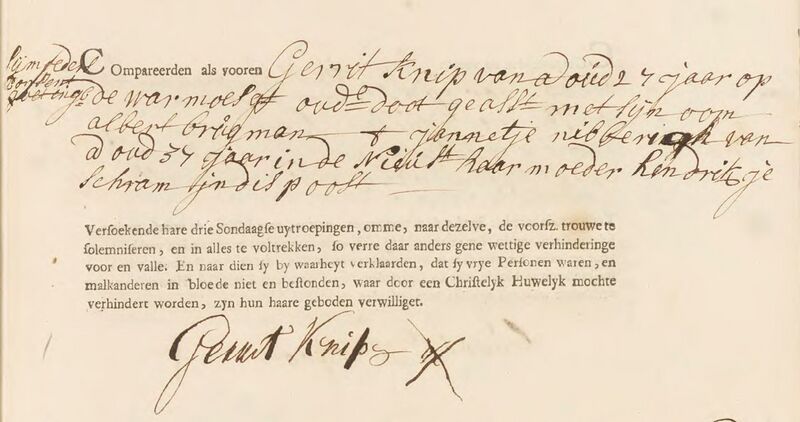 Compareerden als vooren Gerrit Knip van a oud 27 jaar op
de warmoesgt oudrs doot geasst met sijn oom
albert brugman & Jannetje nibberigh van
a oud 37 jaar in de Nieust haar moeder hendrikje
schram indispoost
Versoekende hare drie Sondaagse uytroepingen, omme, naar dezelve, de voorsz. trouwe te
solemniseren, en in alles te voltrekken, so verre daar anders gene wettige verhinderinge
voor en valle. En naar dien sy by waarheyt verklaarden, dat sy vrye Personen waren, en
malkanderen in bloede niet en bestonden, waar door een Christelyk Huwelyk mochte
verhindert worden, zyn hun haare geboden verwilliget.
Gerrit Knip